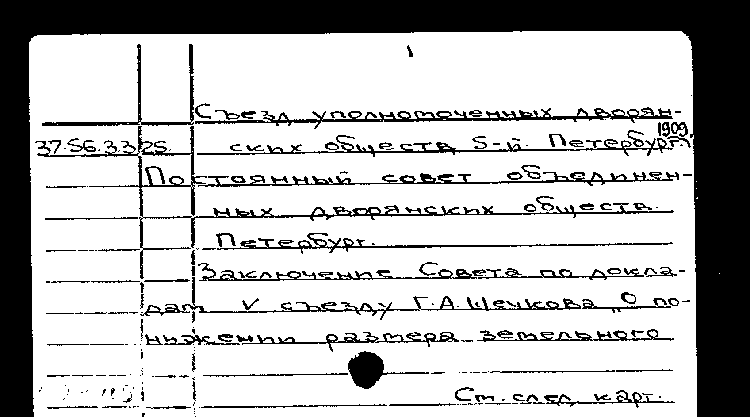 Съезд уполномоченных дворян-
37.56.3.3 25. ских обществ 5-й. Петербург. 1909.
Постоянный совет объединен-
ных дворянских обществ.
Петербург.
Заключение Совета по докла-
дам V съезду Г.А.Шечкова „О по-
нижении размера земельного
См. след. карт.